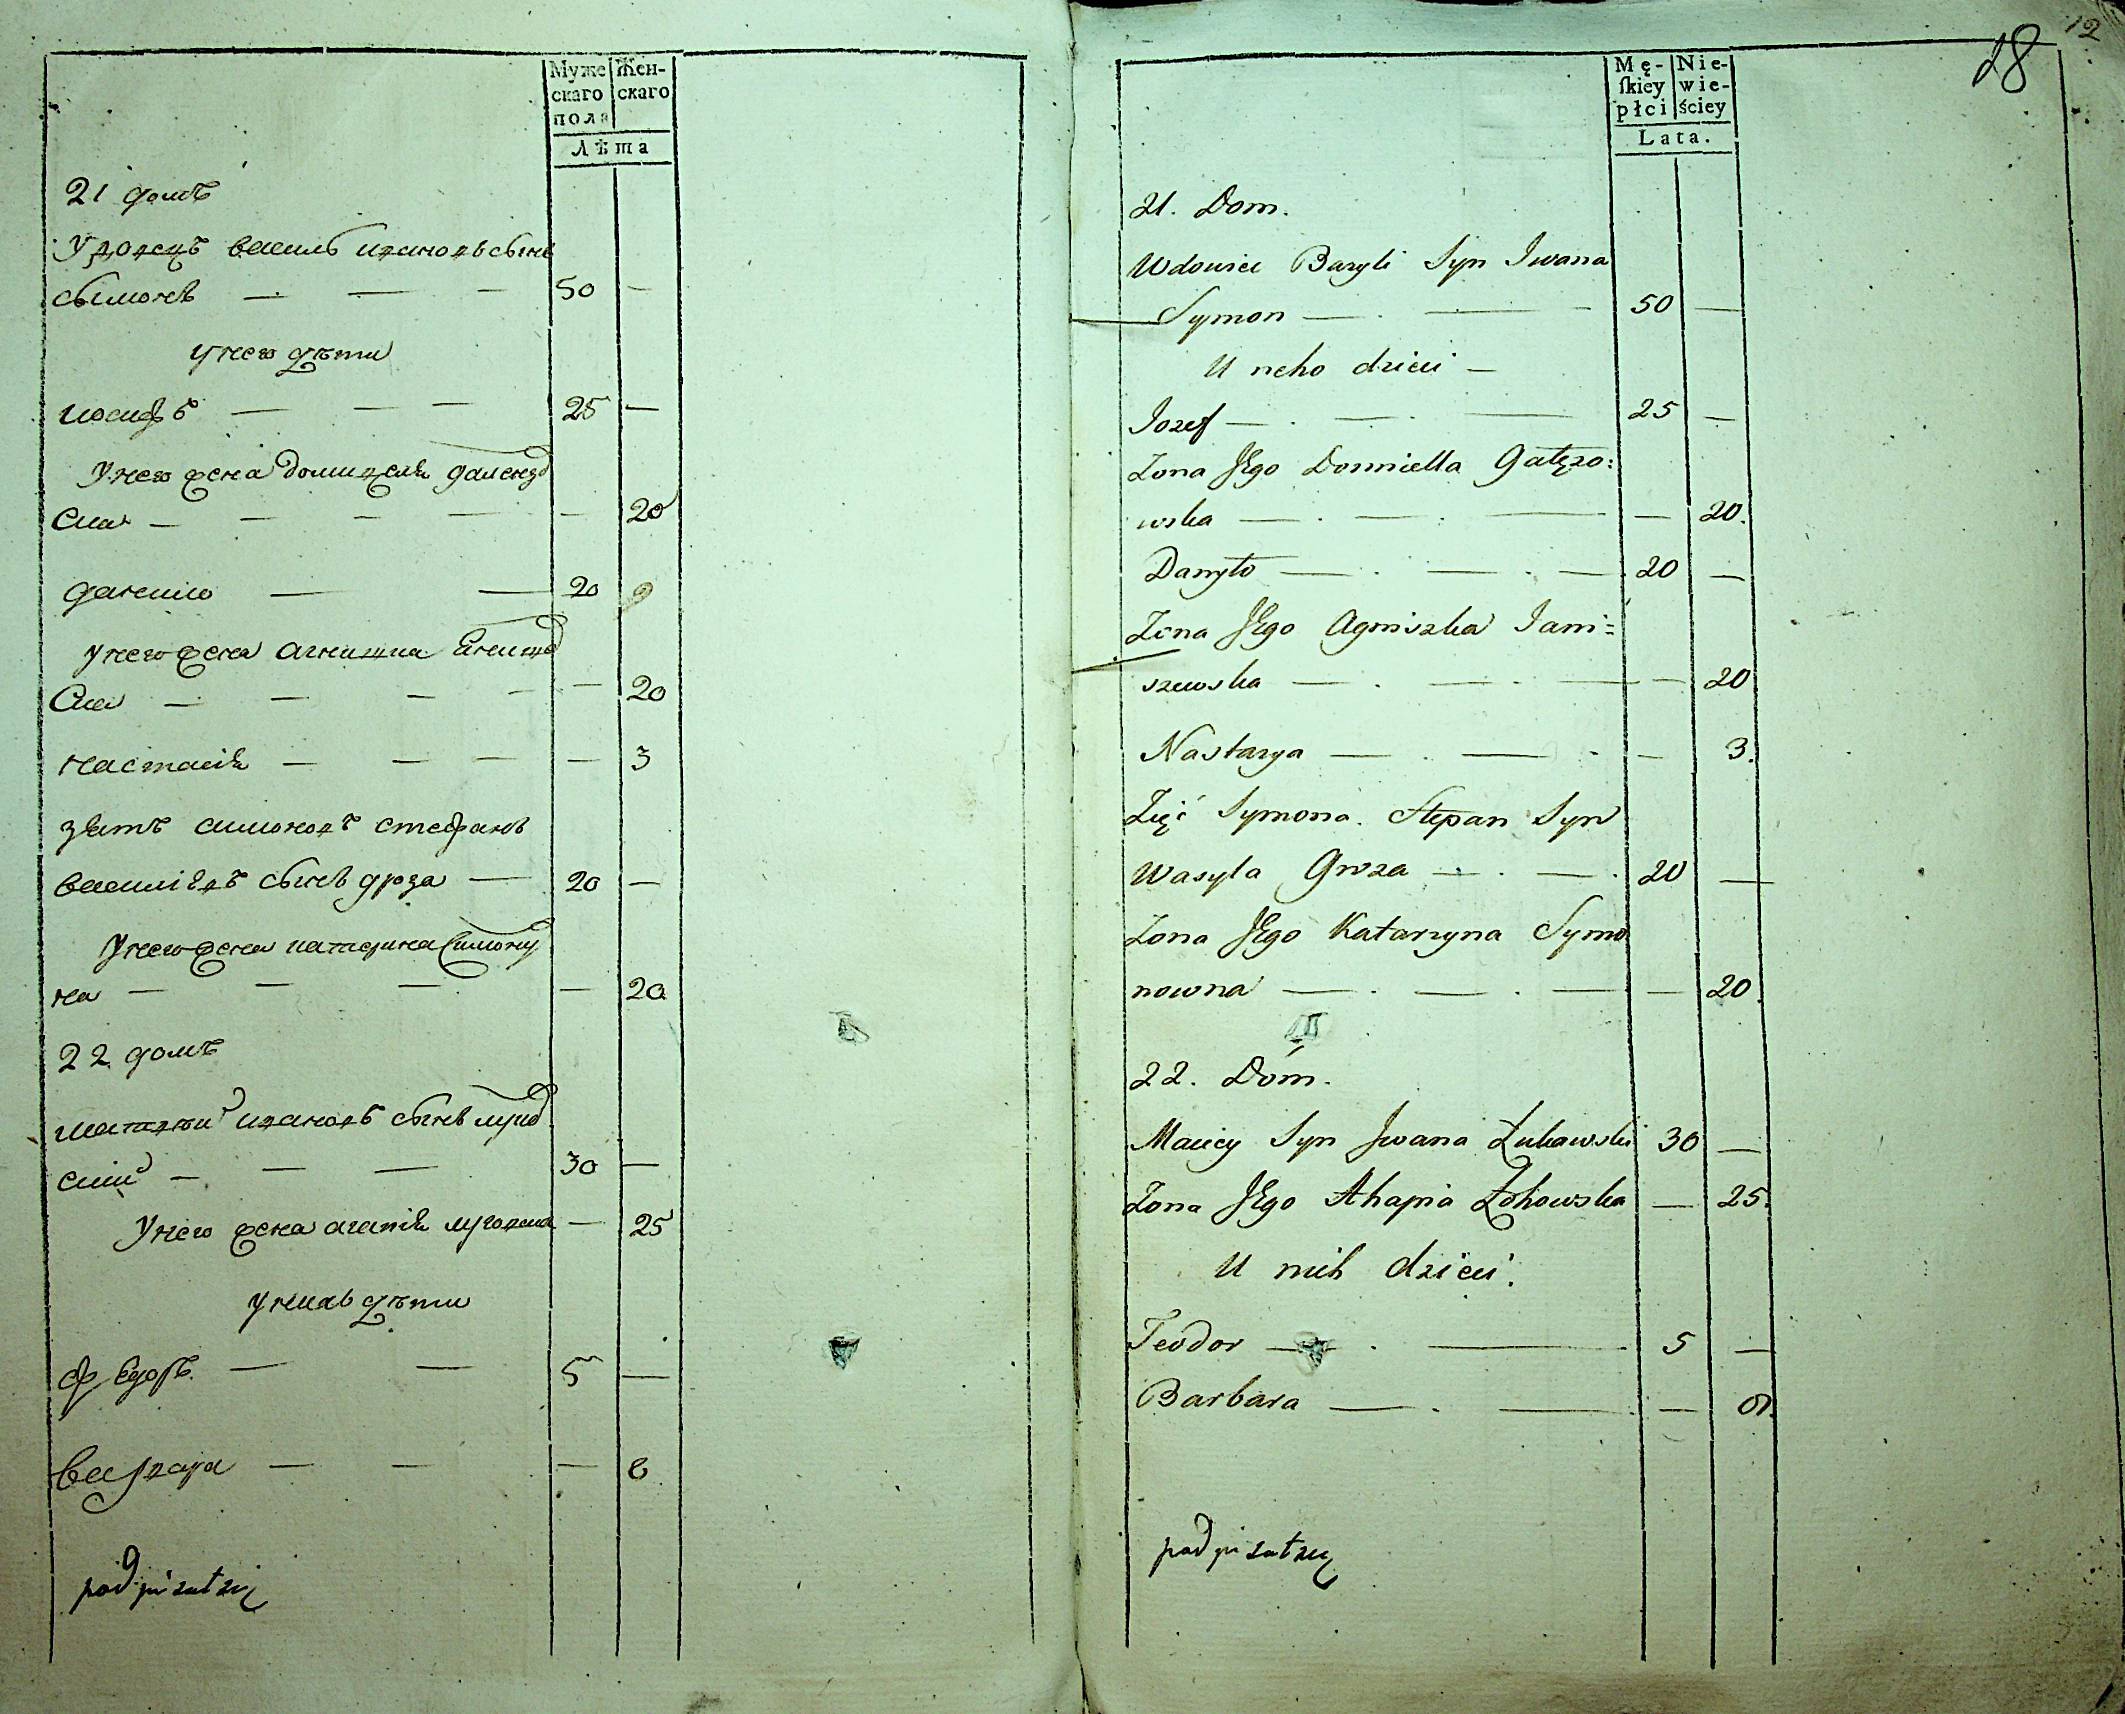 Муже
скаго
пола
Жен-
скаго
Лѣта
21 домъ
Удовецъ василь ивановъ сынъ
сымонъ — — — 50 —
у него дѣти
иосифъ — — — 25 —
У него жена домицеля
ска — — — — — 20
данило — — 20
у него жена агнишка
ска — — — — — 20
настасія — — — — 3
зять симоновъ стефанъ
василіевъ сынъ дроза — 20 —
У него жена катерина Симону
на — — — — 20
22 домъ
матвѣй ивановъ сынъ
скій — — — 30 —
У него жена агапія — 25
У нихъ дѣти
федоръ — — 5 —
варвара — — — 6
podpisałzię
12
28
Mę-
ſkiey
płci
Nie-
wie-
ściey
Lata.
21. Dom.
Wdowiec Bazyli Syn Iwana
Symon — . — - 50 —
U neho dzieci —
Jozef — . — . — 25 —
Zona JEgo Domniella Gałęzo:
wska — . — . — — 20.
Danyło — . — . — 20 —
Zona JEgo Agniszka Jani=
szewska — . — . — — 20
Nastazya — . — - — 3.
Zięć Symona. Stepan Syn
Wasyla Groza — . — . 20 —
Zona JEgo Katarzyna Symo
nowna — . — . — — 20
22. Dóm.
Maticy Syn Jwana Łukawski 30 —
Zona JEgo Ahapia Łohowska — 25.
U nich dzieci.
Teodor — . — 5 —
Barbara — . — . — 6.
podpisałzię